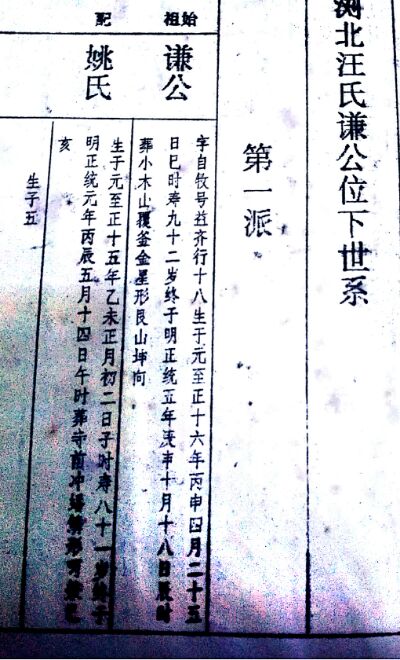 浏北汪氏谦公位下世系
第一派
始祖
谦公
字自牧号益齐行十八生于元至正十六年丙申四月二十五
日巳时寿九十二岁终于明正统五年庚申十月十八日辰时
葬小木山覆釜金星形艮山坤向
配
姚氏
生于元至正十五年乙未正月初二日子时寿八十一岁终于
明正统元年丙辰五月十四日午时葬寺前冲
亥
生子五